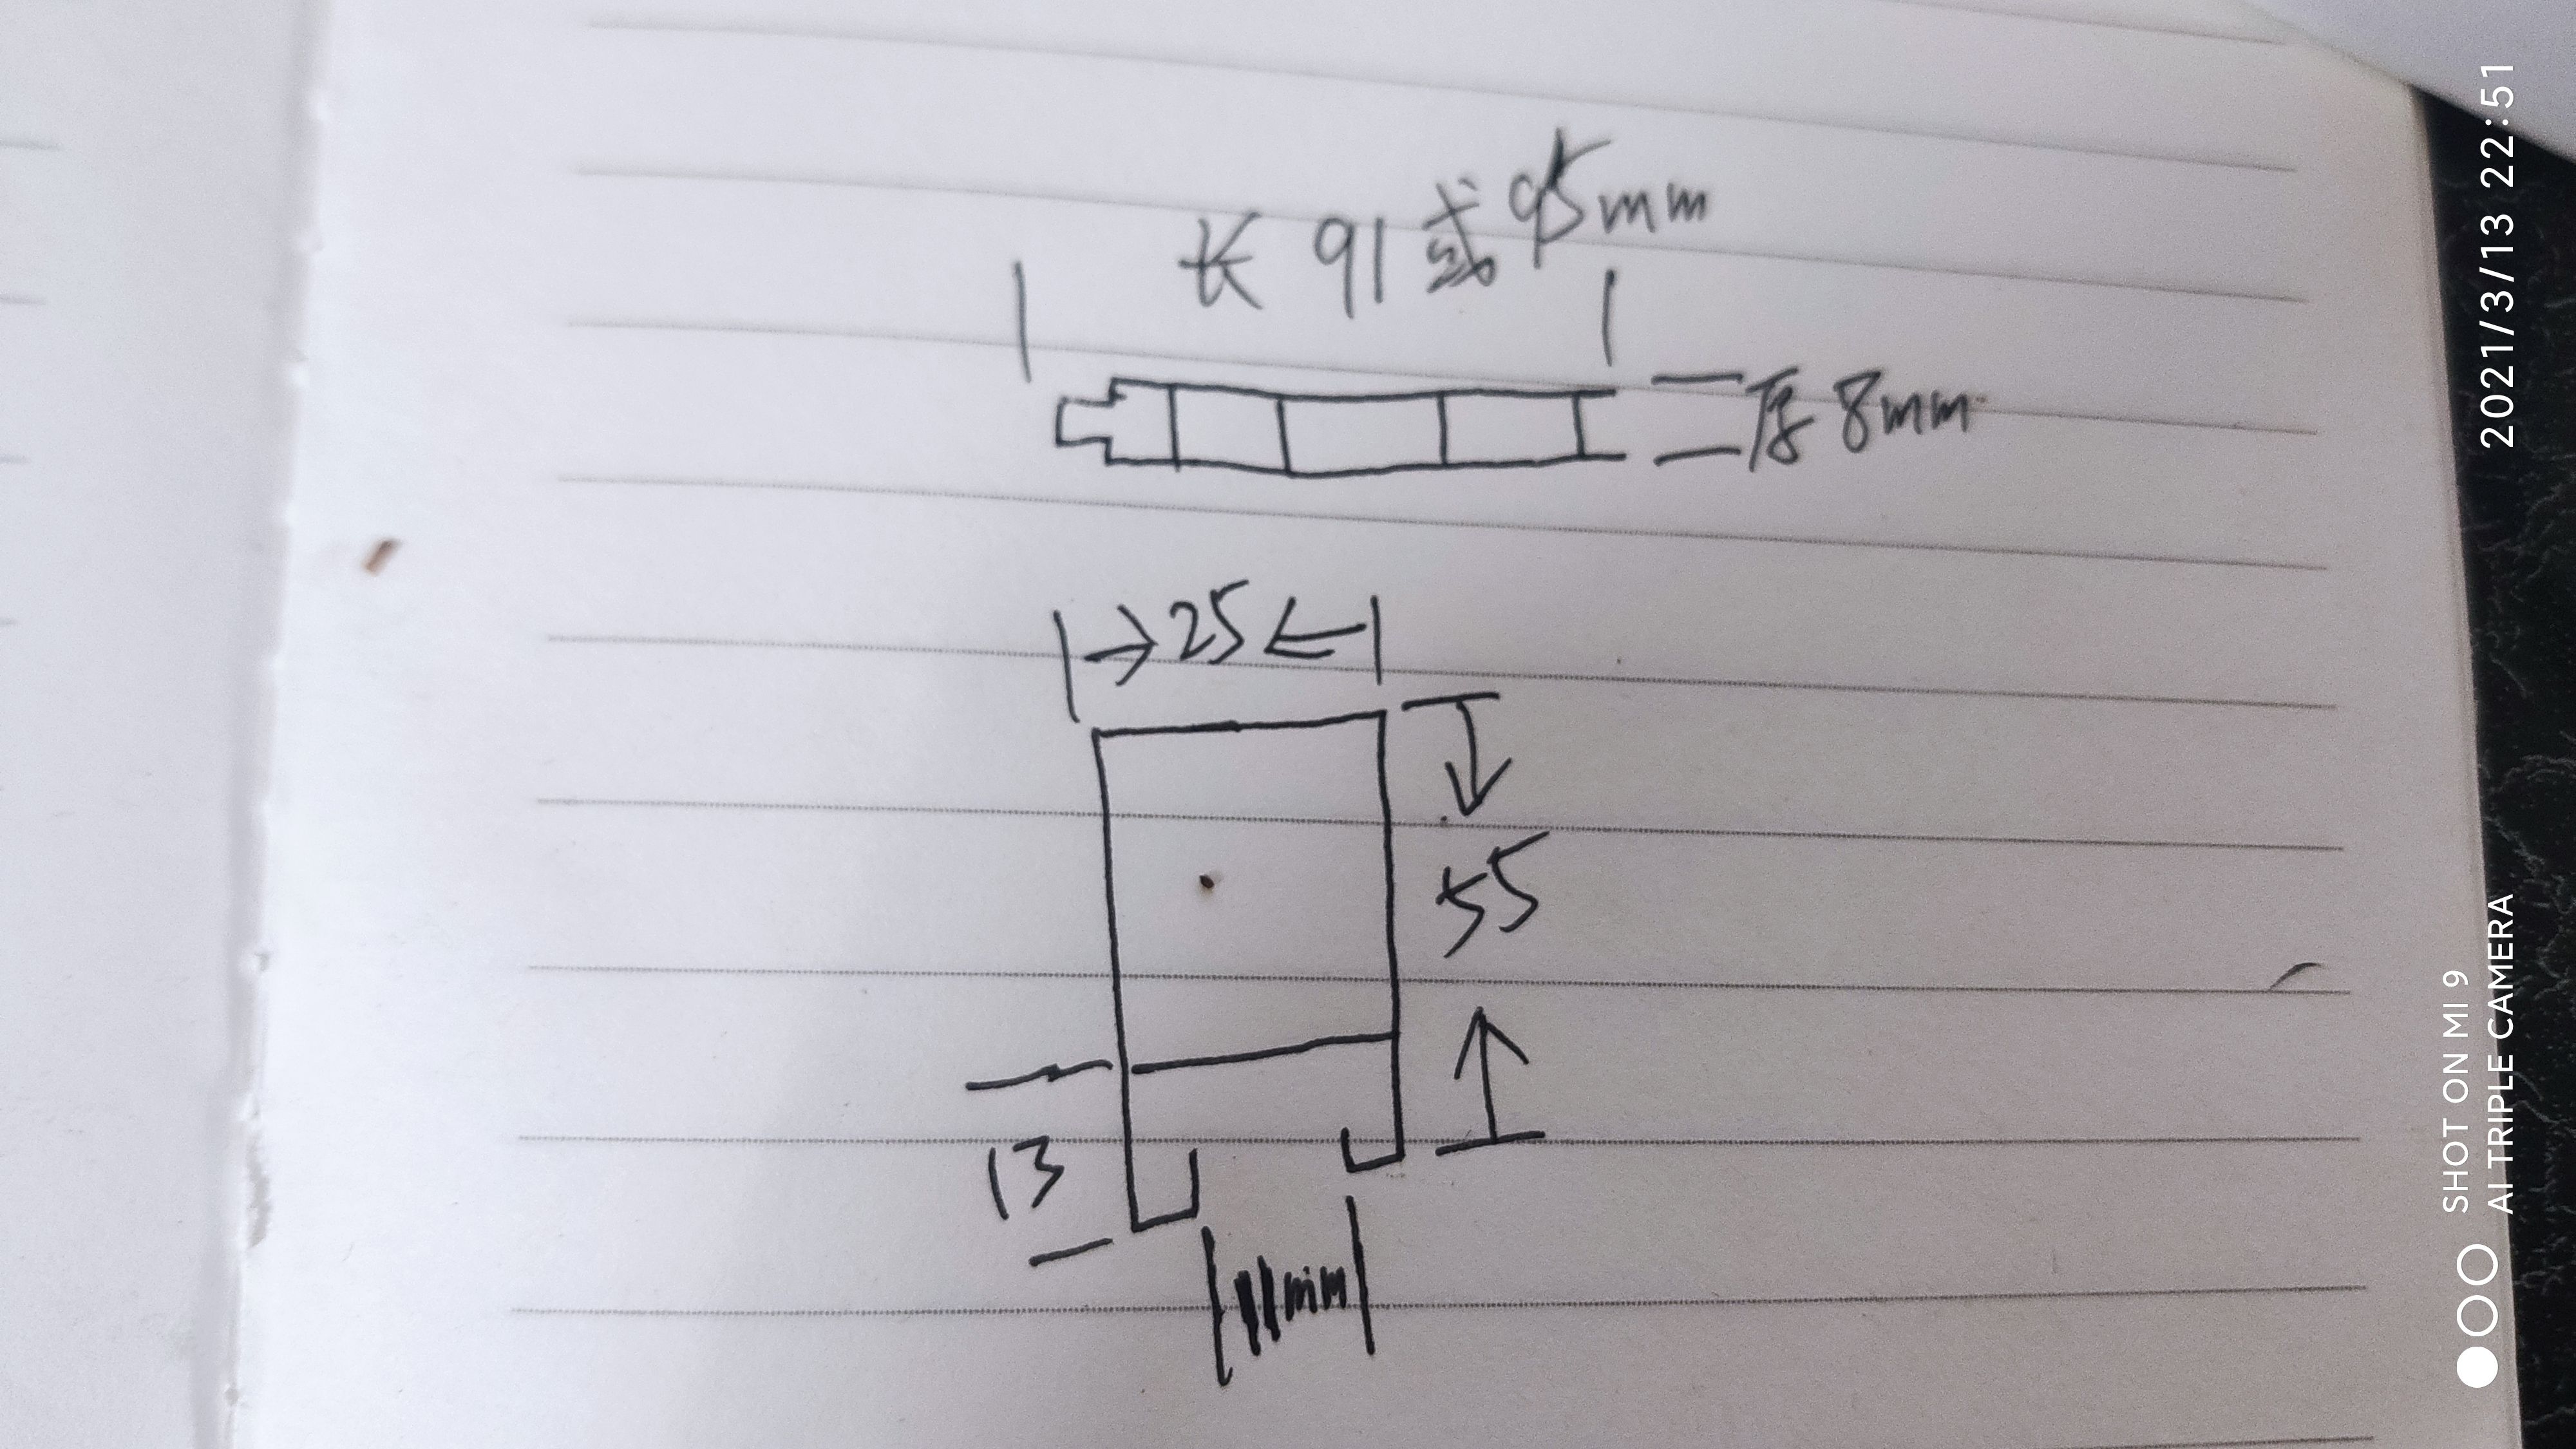 长 91 或 95mm
厚 8mm
25
55
13
11mm
2021/3/13 22:51
SHOT ON MI 9
AI TRIPLE CAMERA